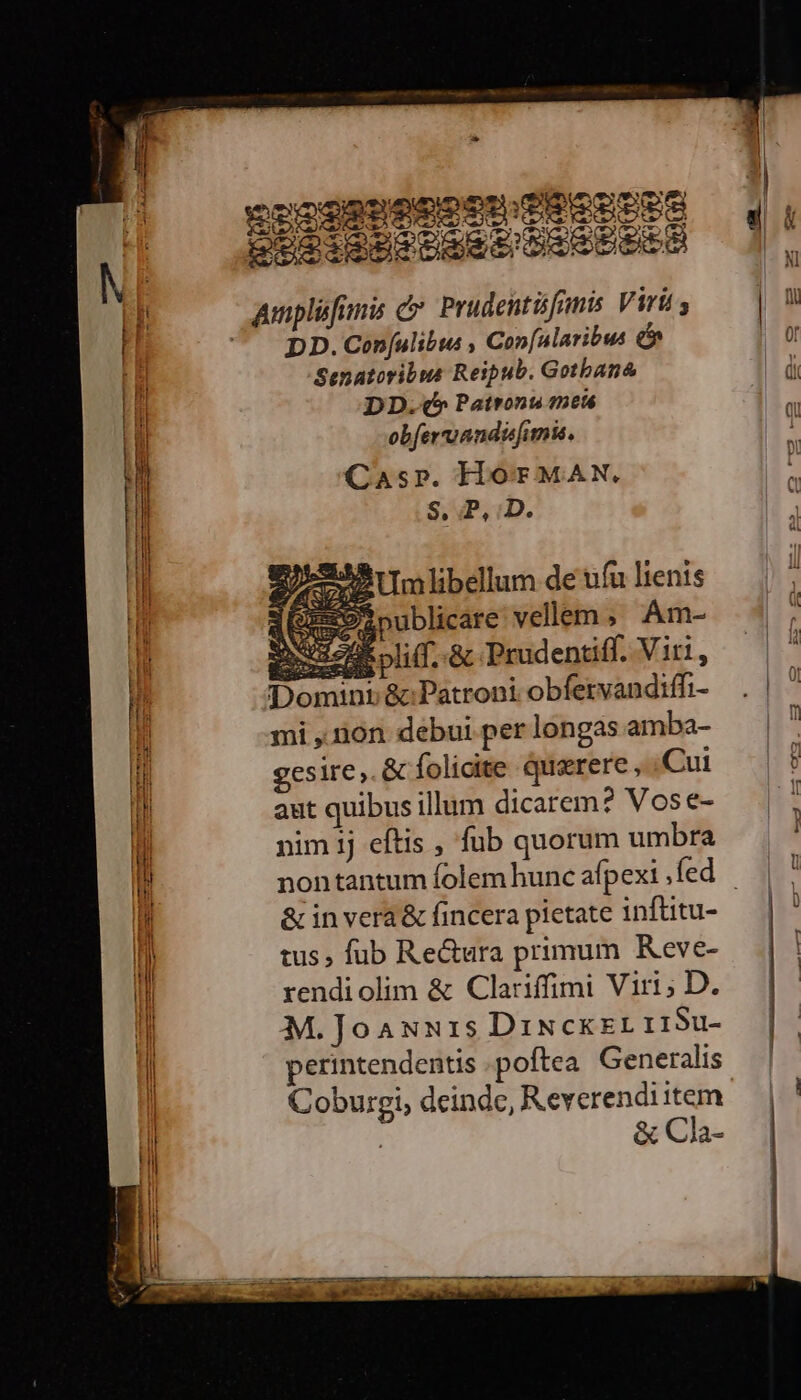 Ampliſſimis & Prudentiſſimis Viris,
DD. Conſulibus, Conſularibus &
Senatoribus Reipub. Gothanæ
DD. & Patronis meis
obſervandiſſimis.
CASP. HOFMAN.
S. P. D.
CUm libellum de uſu lienis
publicare vellem, Am-
pliſſ. & Prudentiſſ. Viri,
Domini & Patroni obſervandiſſi-
mi, non debui per longas amba-
gesire, & ſolicite quærere, Cui
aut quibus illum dicarem? Vos e-
nim ij eſtis, ſub quorum umbra
non tantum ſolem hunc aſpexi, ſed
& in vera & ſincera pietate inſtitu-
tus, ſub Rectura primum Reve-
rendi olim & Clariſſimi Viri, D.
M. JOANNIS DINCKELII Su-
perintendentis poſtea Generalis
Coburgi, deinde, Reverendi item
& Cla-